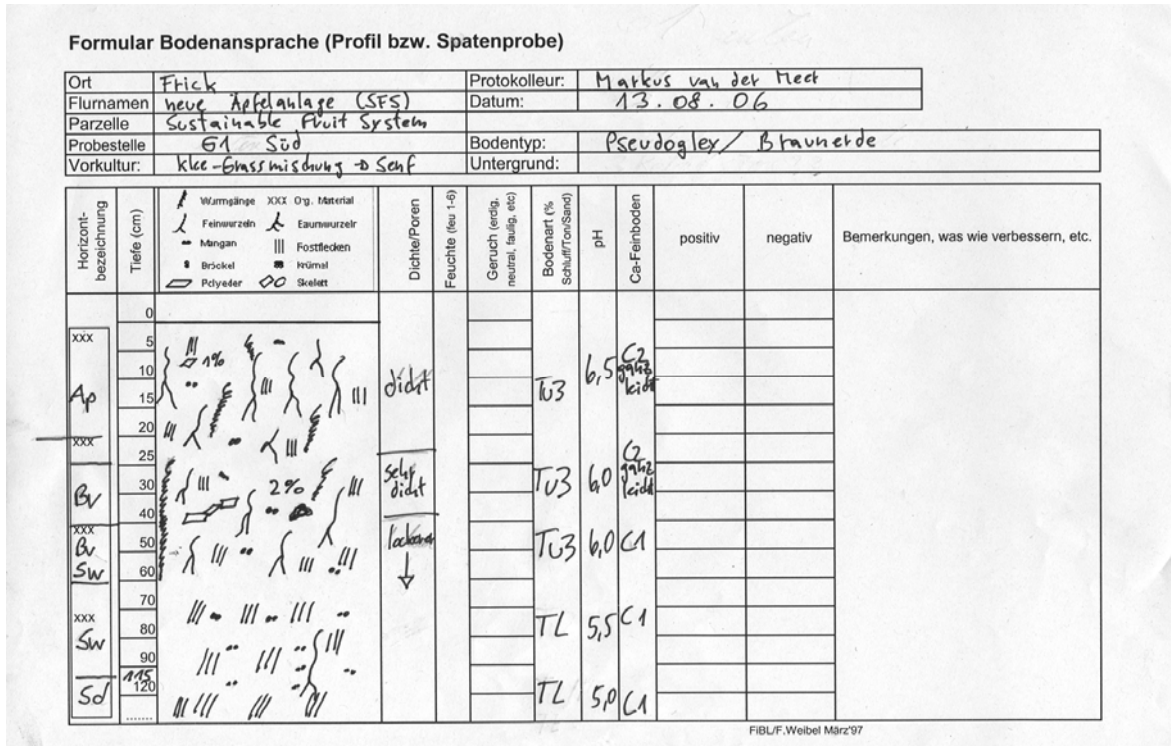 Formular Bodenansprache (Profil bzw. Spatenprobe)
Ort Frick Protokolleur: Markus van der Meer
Flurnamen neue Äpfelanlage (SFS) Datum: 13.08.06
Parzelle Sustainable Fruit System
Probestelle G1 Süd Bodentyp: Pseudogley / Braunerde
Vorkultur: Klee-Grassmischung → Senf Untergrund:
Horizont-bezeichnung
Tiefe (cm)
Wurmgänge XXX Org. Material
Feinwurzeln Baumwurzeln
Mangan Rostflecken
Bröckel Krümel
Polyeder Skelett
Dichte/Poren
Feuchte (feu 1-6)
Geruch (erdig, neutral, faulig, etc)
Bodenart (% Schluff/Ton/Sand)
pH
Ca-Feinboden
positiv
negativ
Bemerkungen, was wie verbessern, etc.
0
xxx 5 1%
10 dicht 6,5 C2 ganz leicht
Ap 15 Tu3
20
xxx 25
Bv 30 2% sehr dicht Tu3 6,0 C2 ganz leicht
40
xxx
Bv 50 lockerer Tu3 6,0 C1
Sw 60
70
xxx
Sw 80 TL 5,5 C1
90
115
Sd 120 TL 5,0 C1
........
FiBL/F.Weibel März'97